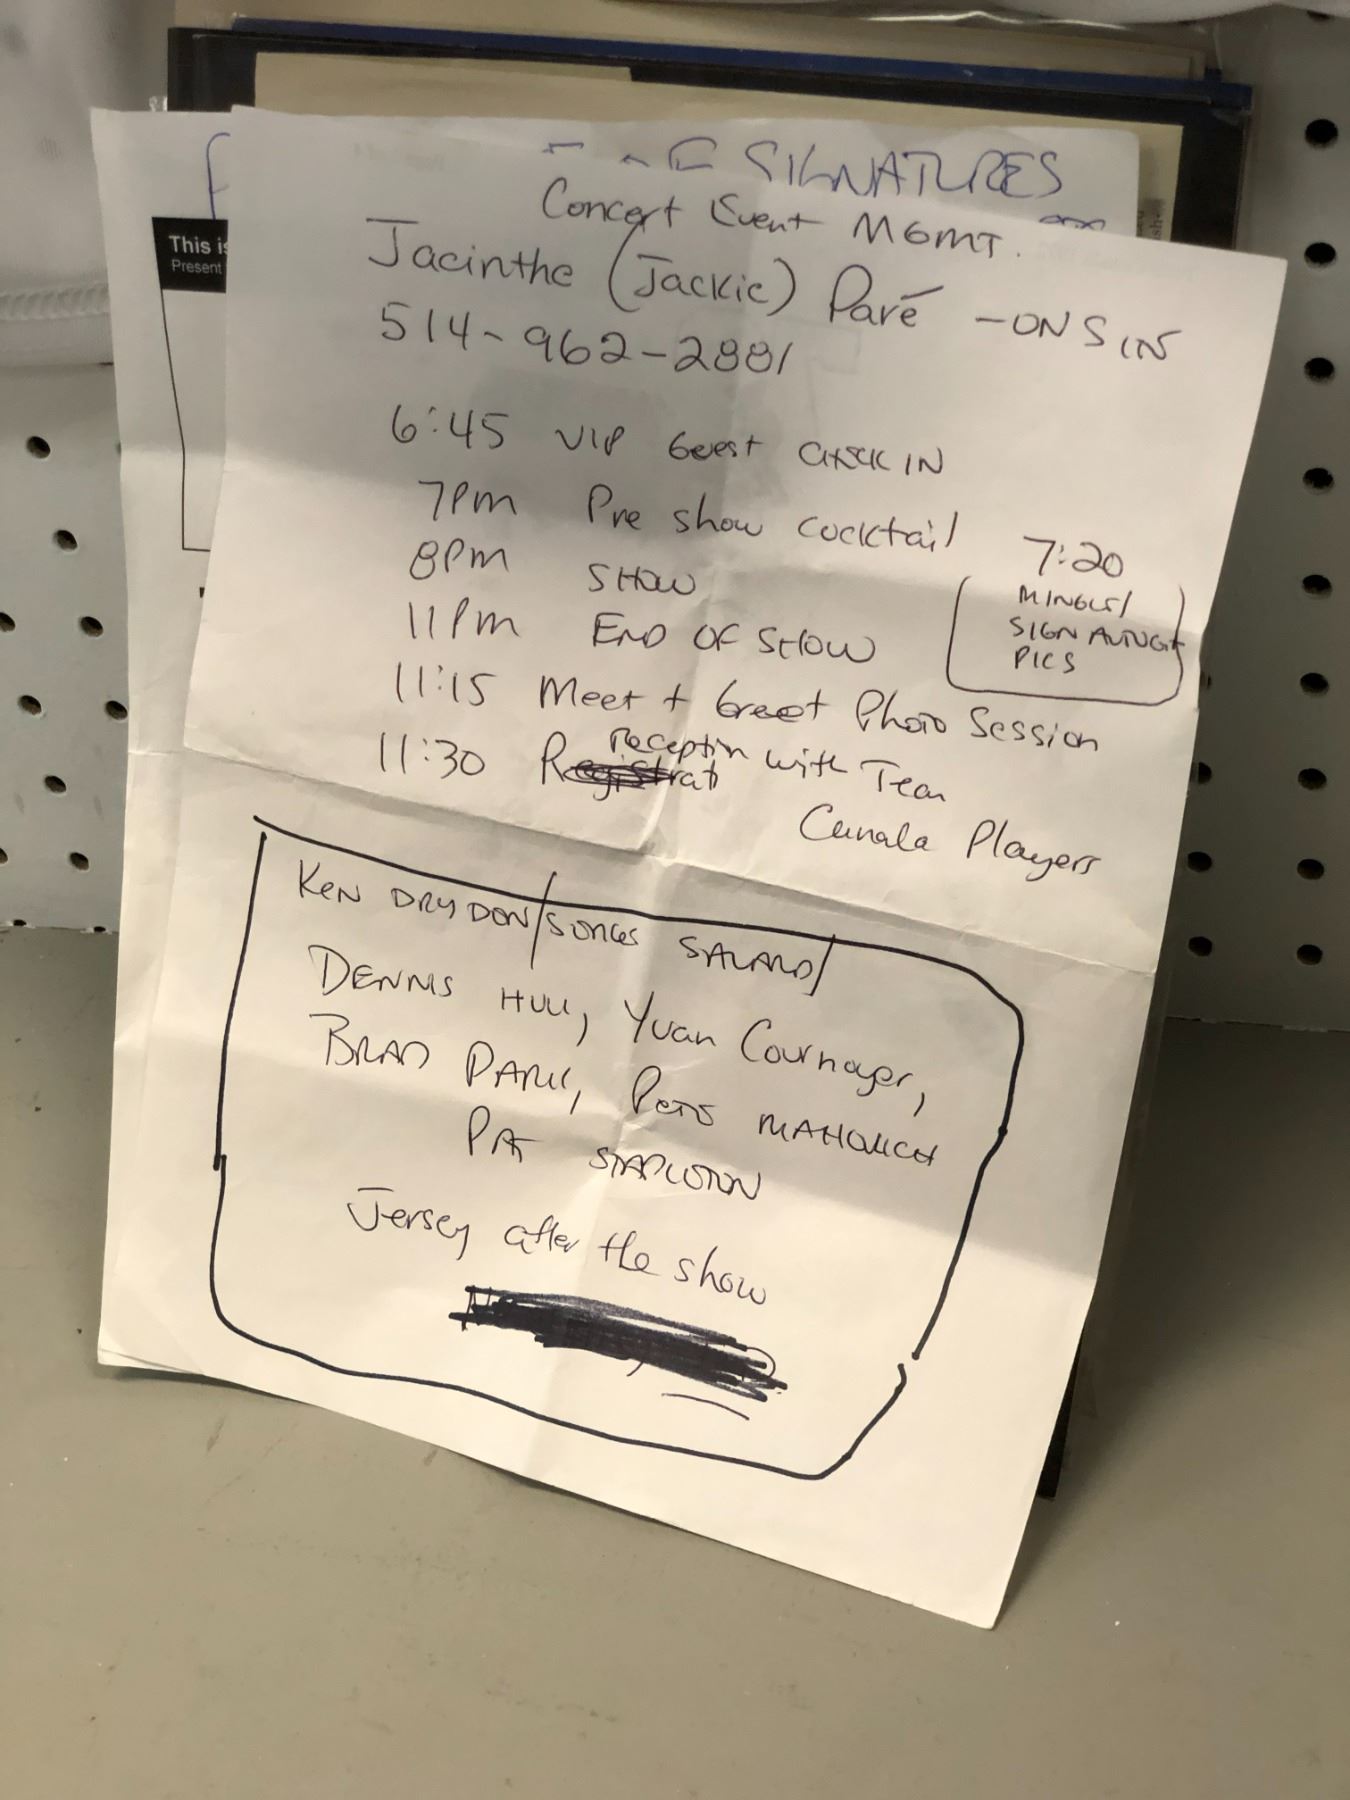 SIGNATURES
This is
Present
Concert Event MGMT.
Jacinthe (Jackie) Paré - ON SIN
514-962-2881
6:45 VIP Guest CHECK IN
7pm Pre show cocktail
7:20
MINGLE/
SIGN AUTOG
PICS
8pm SHOW
11pm END OF SHOW
11:15 Meet + Greet Photo Session
11:30 Reception with Team
Canada Players
KEN DRYDON/SONGES SAVARD/
DENNIS HULL, Yvan Cournoyer,
BRAD PARK, PETE MAHOVLICH
PAT STAPLETON
Jersey after the show